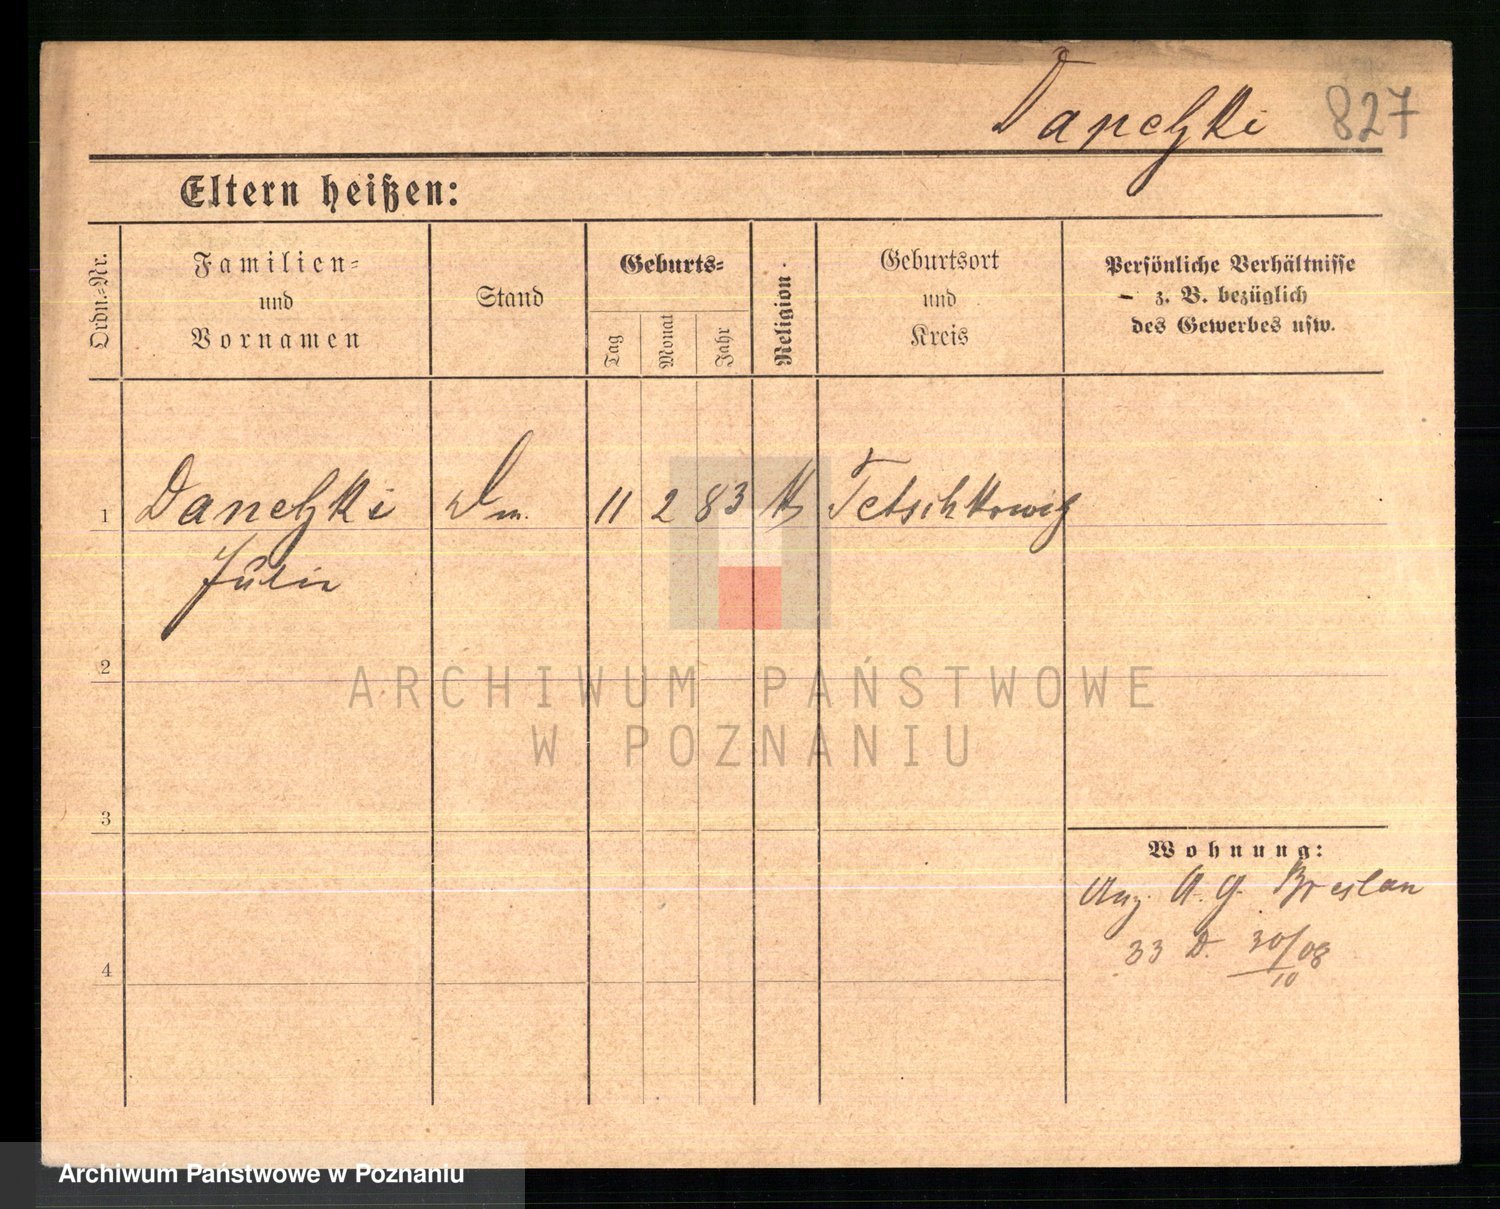 Danetzki 827
Eltern heißen:
Ordn.-Nr.
Familien-
und
Vornamen
Stand
Geburts-
Tag
Monat
Jahr
Religion
Geburtsort
und
Kreis
Persönliche Verhältnisse
z. B. bezüglich
des Gewerbes usw.
1 Danetzki 11 2 83
Julie
2
3
4
Wohnung:
A. G. Breslau
33 D. 30/08
10
ARCHIWUM PAŃSTWOWE
W POZNANIU
Archiwum Państwowe w Poznaniu